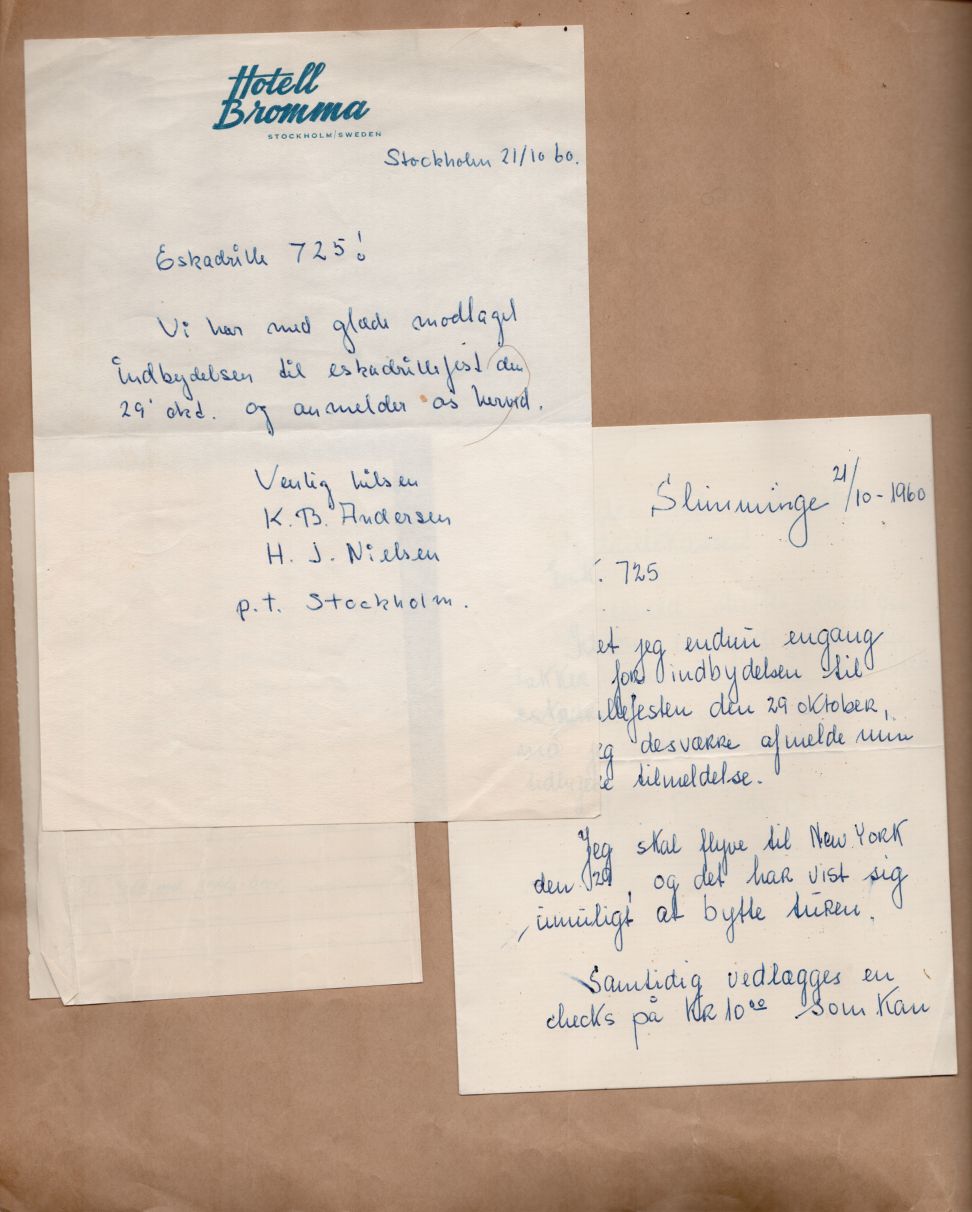 Hotell
Bromma
STOCKHOLM/SWEDEN
Stockholm 21/10 60.
Eskadrille 725!
Vi har med glæde modtaget
indbydelsen til eskadrillefest den
29' okt. og anmelder os herved.
Venlig hilsen
K. B. Andersen
H. J. Nielsen
p.t. Stockholm.
Slimminge 21/10-1960
. 725
et jeg endnu engang
for indbydelsen til
llefesten den 29 oktober,
eg desværre afmelde min
e tilmeldelse.
Jeg skal flyve til New York
den 29, og det har vist sig
umuligt at bytte turen.
Samtidig vedlægges en
checks på KR 10.00 som kan